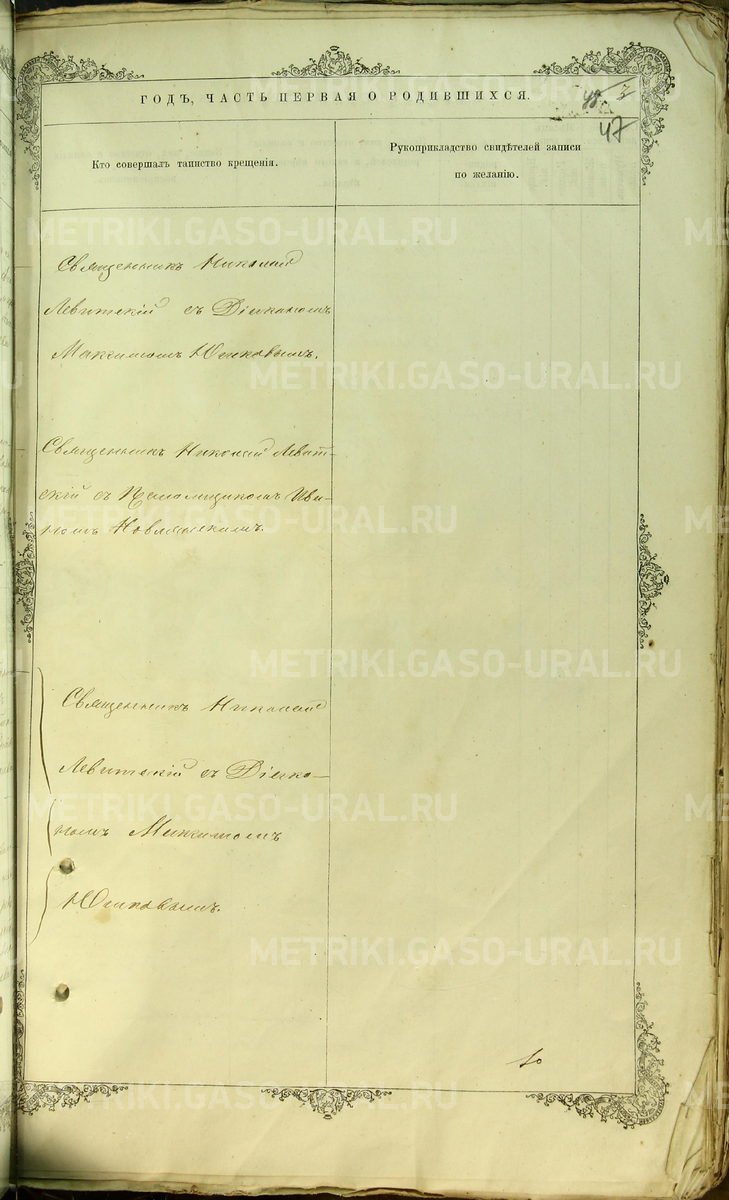 ГОДЪ, ЧАСТЬ ПЕРВАЯ О РОДИВШИХСЯ.
47
Кто совершалъ таинство крещенія.
Рукоприкладство свидѣтелей записи
по желанію.
Священникъ Николай
Левитскій съ Діякономъ
Максимомъ Юшковымъ.
Священникъ Николай Левит-
скій съ Псаломщикомъ Ива-
номъ
Священникъ Николай
Левитскій съ Діяко-
номъ Максимомъ
Юшковымъ.
METRIKI.GASO-URAL.RU